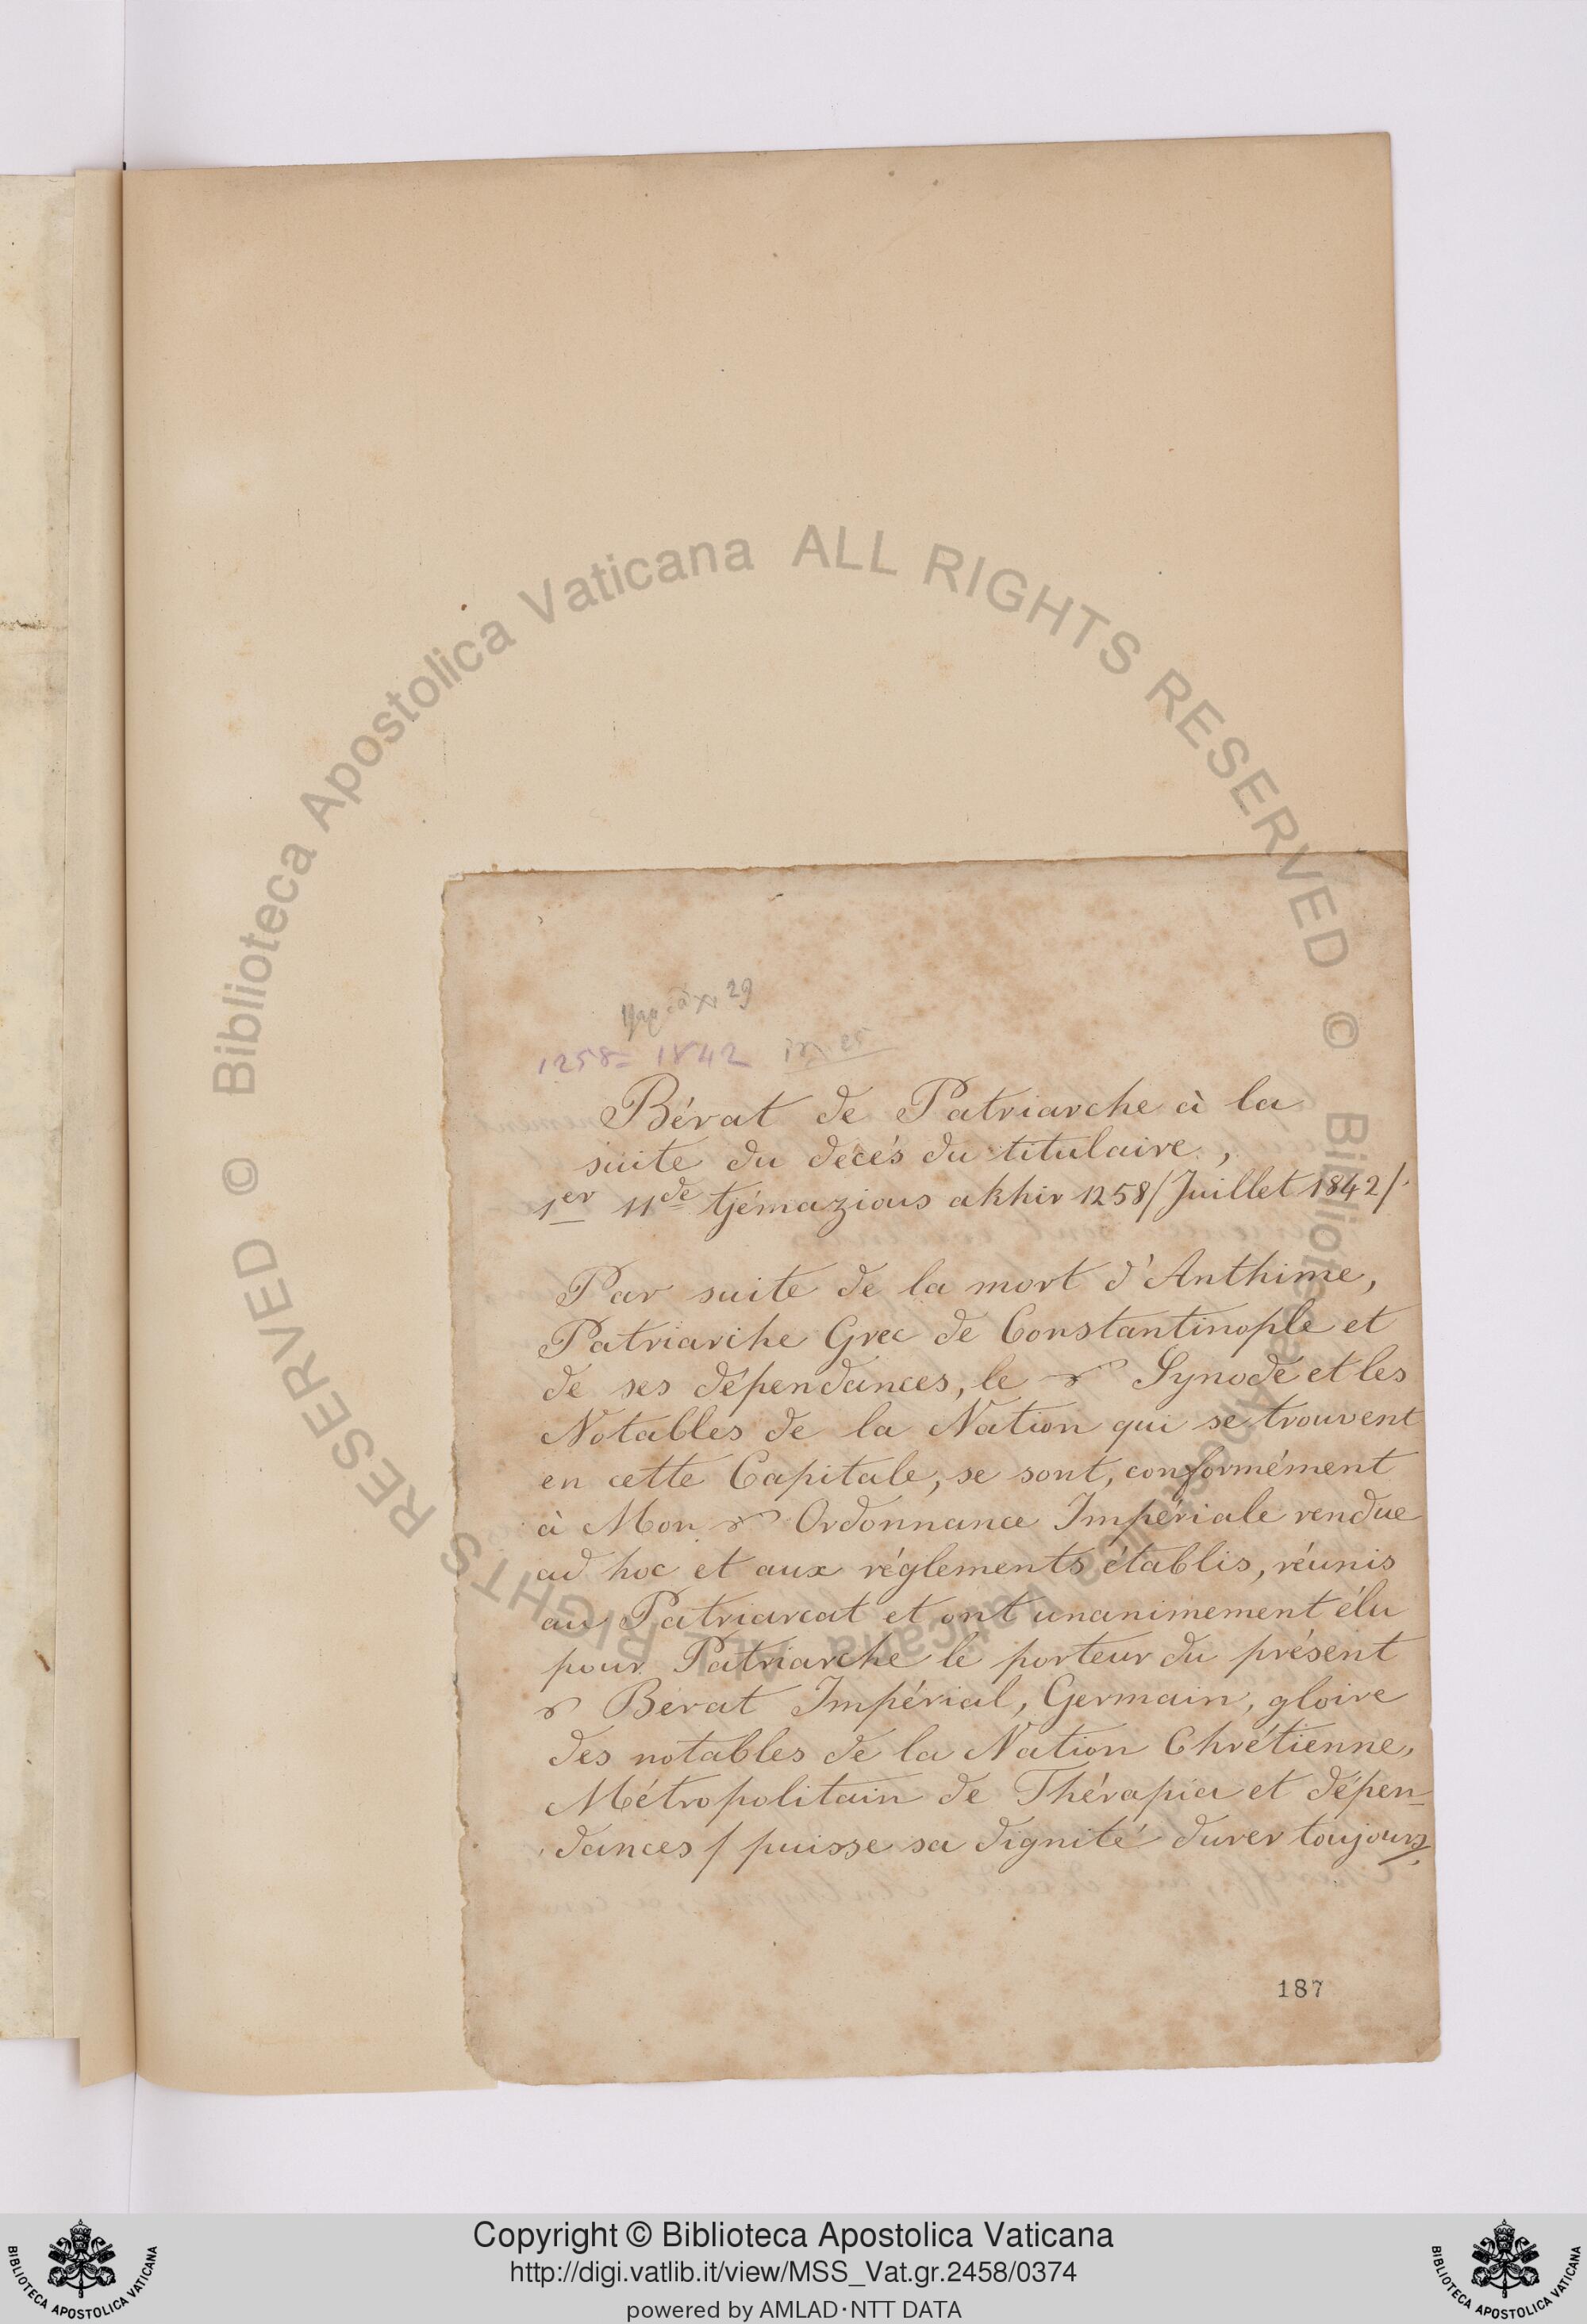 29
1258 = 1842
Bérat de Patriarche à la
suite du décés du titulaire,
1er 11de tjémazious akhir 1258/Juillet 1842/.
Par suite de la mort d'Anthime,
Patriarche Grec de Constantinople et
de ses dépendances, le Synode et les
Notables de la Nation qui se trouvent
en cette Capitale, se sont, conformément
à Mon Ordonnance Impériale rendue
ad hoc et aux réglements établis, réunis
au Patriarcat et ont unanimement élu
pour Patriarche le porteur du présent
Bérat Impérial, Germain, gloire
des notables de la Nation Chrétienne,
Métropolitain de Thérapia et dépen-
dances / puisse sa dignité durer toujours/,
187
© Biblioteca Apostolica Vaticana ALL RIGHTS RESERVED © Biblioteca Apostolica Vaticana ALL RIGHTS RESERVED
Copyright © Biblioteca Apostolica Vaticana
http://digi.vatlib.it/view/MSS_Vat.gr.2458/0374
powered by AMLAD·NTT DATA
BIBLIOTECA APOSTOLICA VATICANA
BIBLIOTECA APOSTOLICA VATICANA